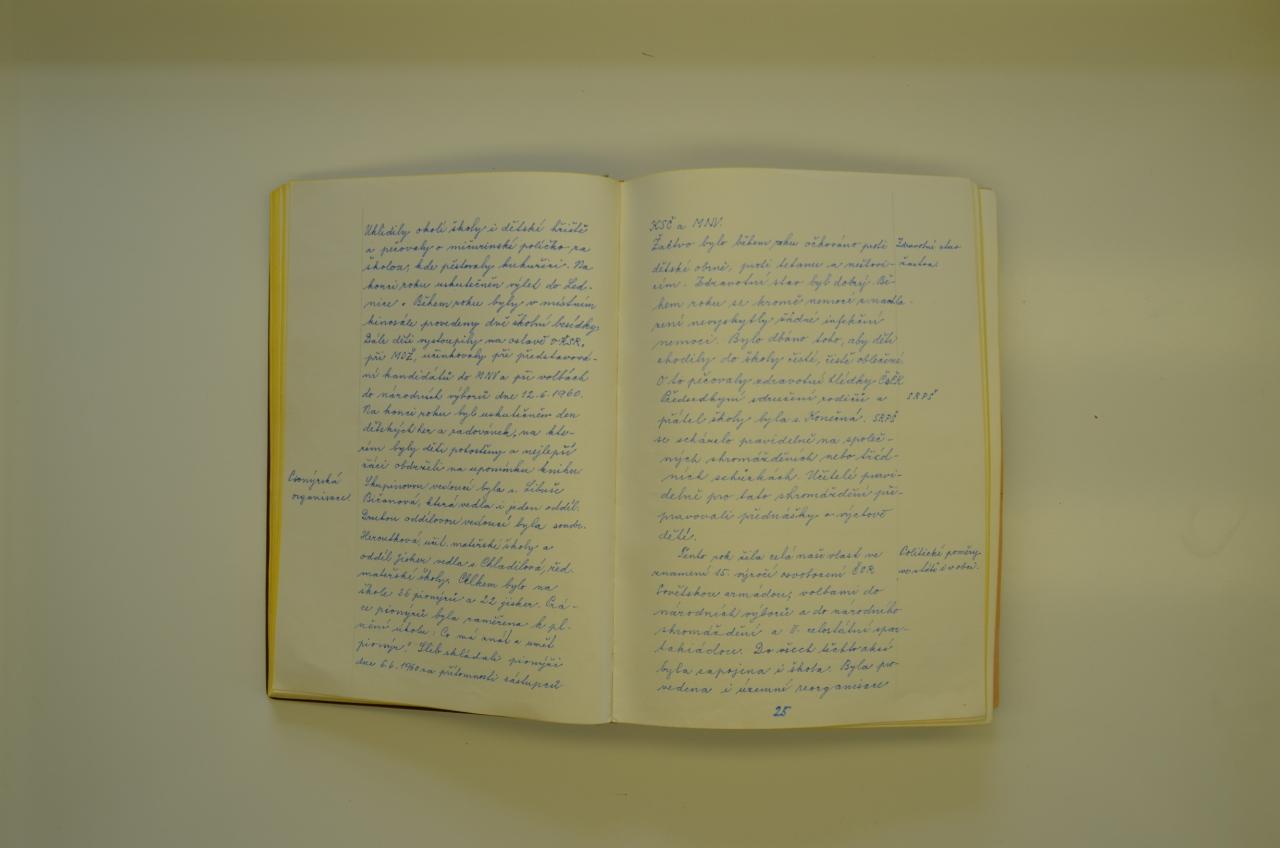 Uklidily okolí školy i dětské hřiště
a pečovaly o mičurinské políčko za
školou, kde pěstovaly kukuřici. Na
konci roku uskutečněn výlet do Led-
nice. Během roku byly v místním
kinosále provedeny dvě školní besídky,
Dále děti vystoupily na oslavě VŘSR,
při MDŽ, účinkovaly při představová-
ní kandidátů do MNV a při volbách
do národních výborů dne 12.6.1960.
Na konci roku byl uskutečněn den
dětských her a radovánek, na kte-
rém byly děti pohoštěny a nejlepší
žáci obdrželi na upomínku knihu
Pionýrská
organisace
Skupinovou vedoucí byla s. Libuše
Bičanová, která vedla i jeden oddíl.
Druhou oddílovou vedoucí byla soudr.
Heroutková, učit. mateřské školy a
oddíl jisker vedla s. Chladilová, řed.
mateřské školy. Celkem bylo na
škole 36 pionýrů a 22 jisker. Prá-
ce pionýrů byla zaměřena k pl-
nění úkolu: Co má znát a umět
pionýr! Slib skládali pionýři
dne 6.6.1960 za přítomnosti zástupců
KSČ a MNV.
Žactvo bylo během roku očkováno proti
Zdravotní stav
žactva
dětské obrně, proti tetanu a neštovi-
cím. Zdravotní stav byl dobrý. Bě-
hem roku se kromě nemocí z nachla-
zení nevyskytly žádné infekční
nemoci. Bylo dbáno toho, aby děti
chodily do školy čistě, čistě oblečené.
O to pečovaly zdravotní hlídky ČSČK
SRPŠ
Předsedkyní sdružení rodičů a
přátel školy byla s. Konečná. SRPŠ
se scházelo pravidelně na společ-
ných shromážděních nebo tříd-
ních schůzkách. Učitelé pravi-
delně pro tato shromáždění při-
pravovali přednášky o výchově
dětí.
Politické poměry
ve státě i v obci.
Tento rok žila celá naše vlast ve
znamení 15. výročí osvobození ČSR
Sovětskou armádou, volbami do
národních výborů a do národního
shromáždění a II. celostátní spar-
takiádou. Do všech těchto akcí
byla zapojena i škola. Byla pro
vedena i územní reorganisace
25